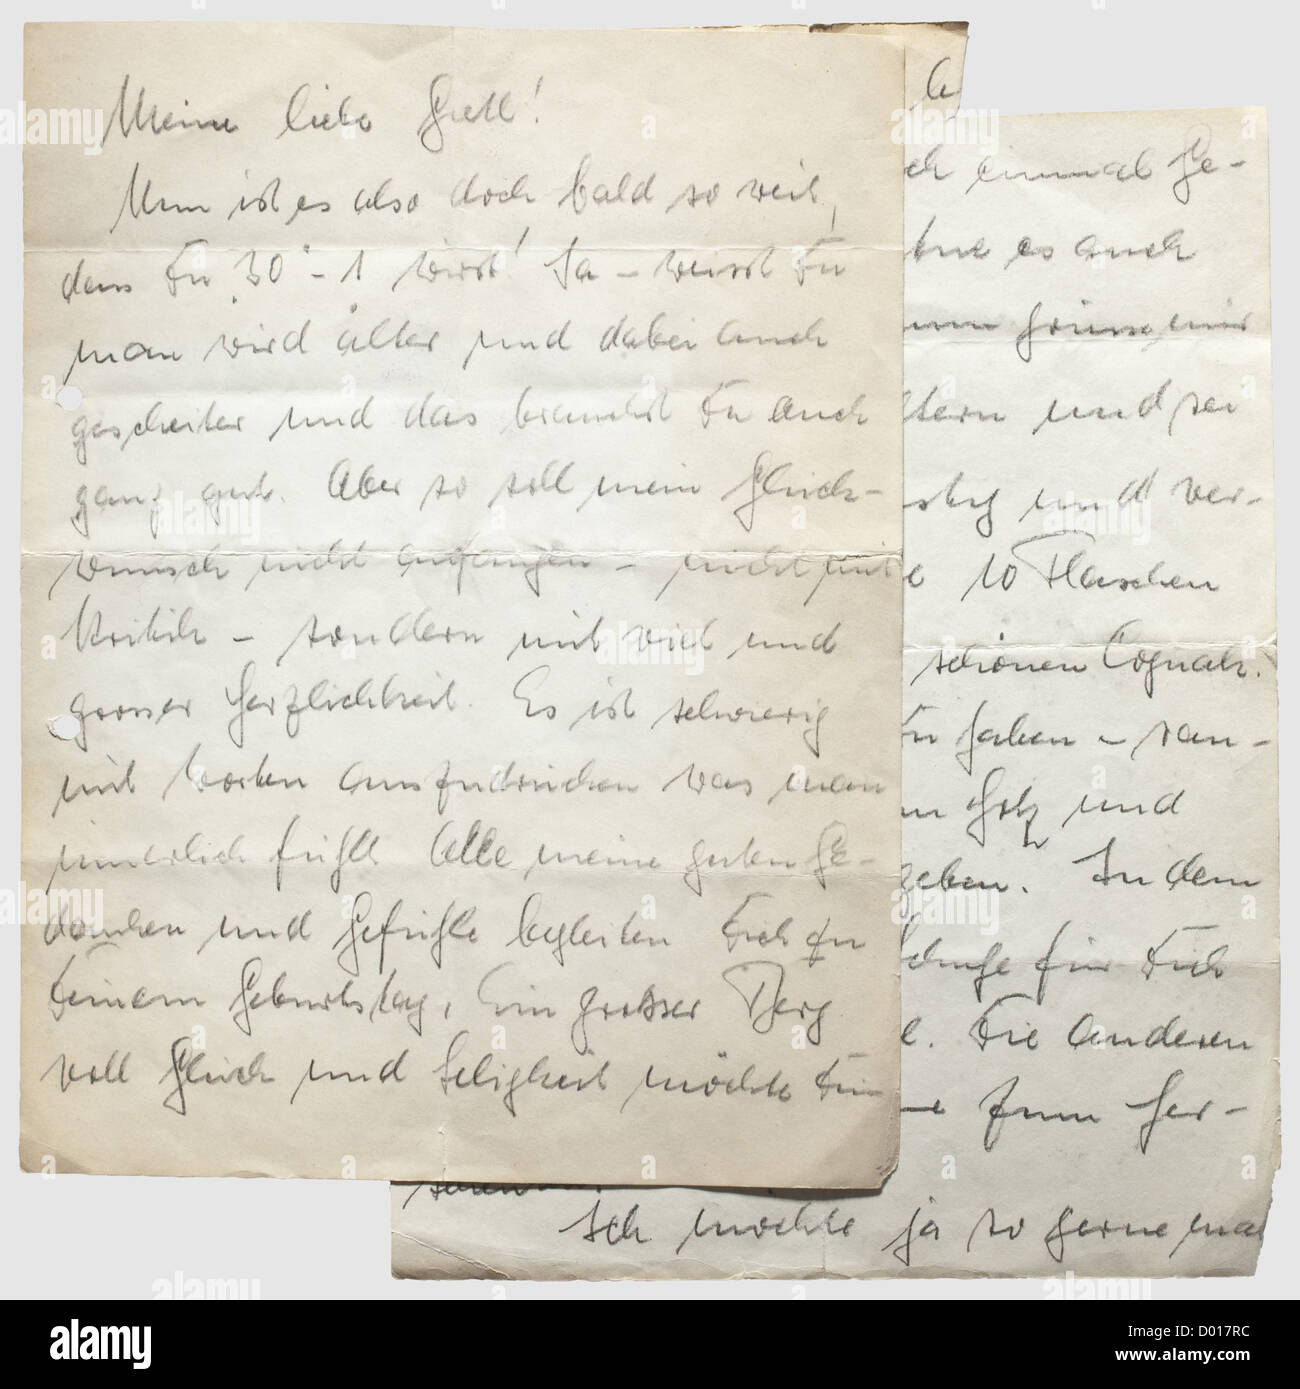 Meine liebe Gretl!
Nun ist es also doch bald so weit,
dass Du "30" - 1 wirst! Ja - weisst Du
man wird älter und dabei auch
gescheiter und das brauchst Du auch
ganz gut. Aber so soll mein Glück-
wunsch nicht anfangen - nicht mit
Kritik - sondern mit viel und
grosser Herzlichkeit. Es ist schwierig
mit Worten auszudrücken was man
innerlich fühlt. Alle meine guten Ge-
danken und Gefühle begleiten Dich zu
Deinem Geburtstag. Ein grosser Berg
voll Glück und Seligkeit möchte
ch einmal Ge-
es auch
grüsse mir
ltern und sei
und ver-
10 Flaschen
schönen Cognak.
Du haben -
Holz und
geben. In dem
für Dich
e. Die anderen
zum Her-
Ich möchte ja so gerne mal
alamy
Image ID: D017RC
www.alamy.com